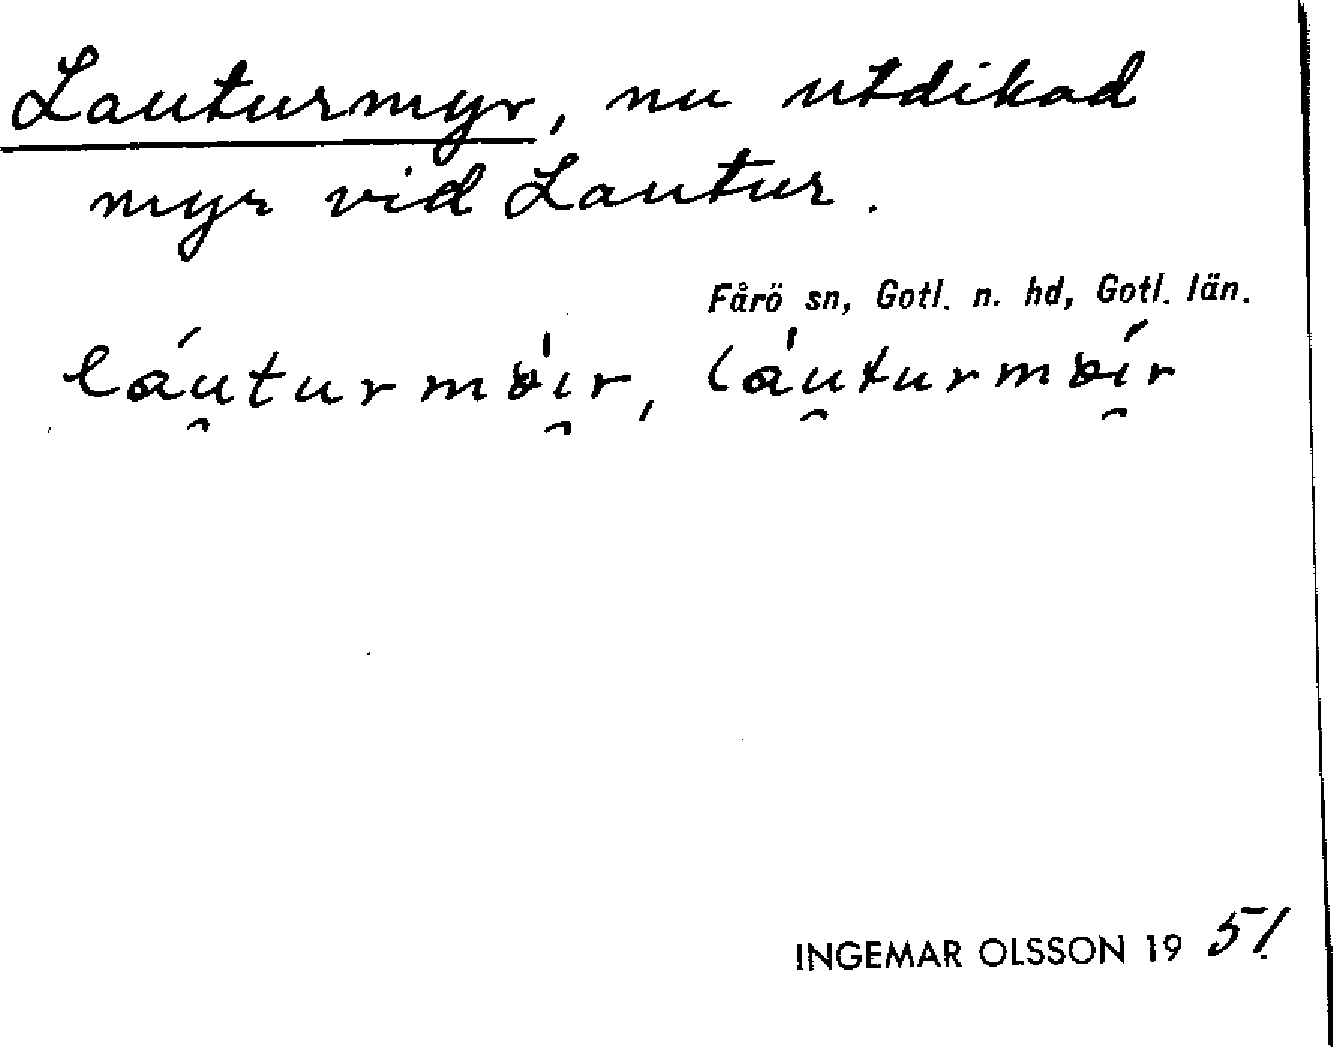 Lauturmyr, nu utdikad
myr vid Lautur.
Fårö sn, Gotl. n. hd, Gotl. län.
INGEMAR OLSSON 19 51